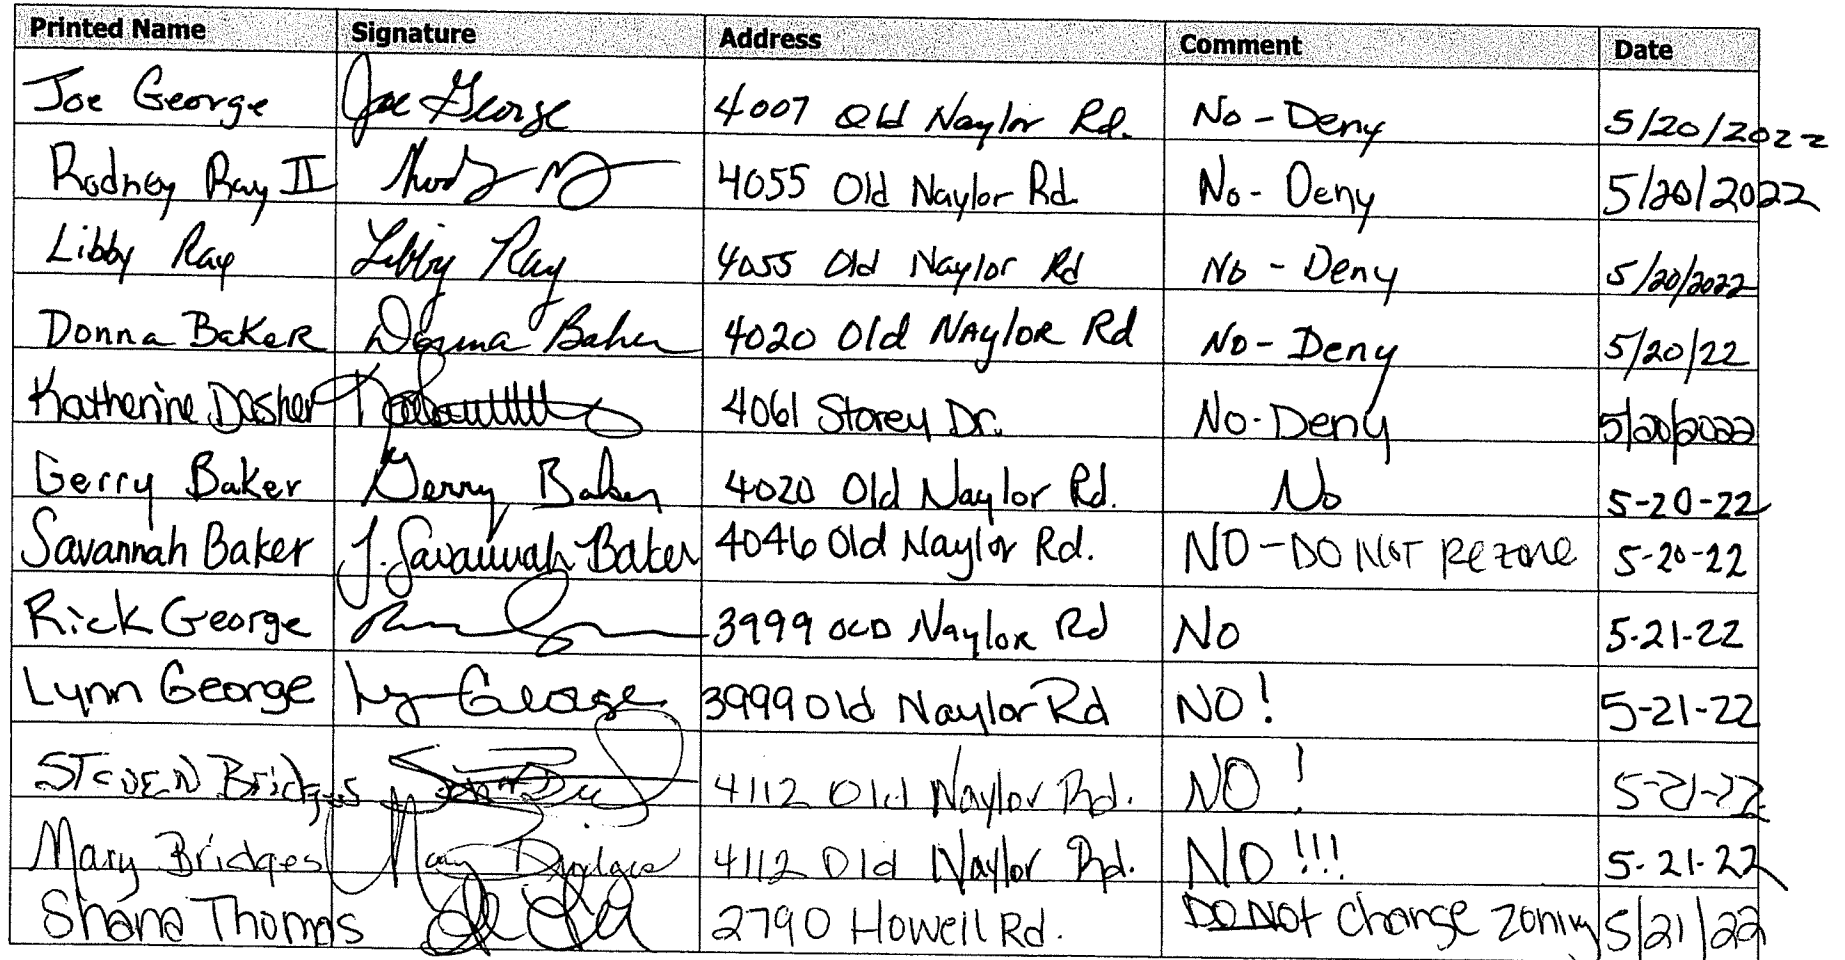 Printed Name Signature Address Comment Date
Joe George Joe George 4007 Old Naylor Rd. No - Deny 5/20/2022
Rodney Ray II 4055 Old Naylor Rd. No - Deny 5/20/2022
Libby Ray Libby Ray 4055 Old Naylor Rd No - Deny 5/20/2022
Donna Baker Donna Baker 4020 Old Naylor Rd No - Deny 5/20/22
Katherine Dasher 4061 Storey Dr. No - Deny 5/20/2022
Gerry Baker Gerry Baker 4020 Old Naylor Rd. No 5-20-22
Savannah Baker J. Savannah Baker 4046 Old Naylor Rd. NO - DO NOT Rezone 5-20-22
Rick George 3999 OLD Naylor Rd No 5-21-22
Lynn George George 3999 Old Naylor Rd NO! 5-21-22
STEVEN Bridges 4112 Old Naylor Rd. NO! 5-21-22
Mary Bridges Mary Bridges 4112 Old Naylor Rd. NO!!! 5-21-22
Shana Thomas 2790 Howell Rd. DO NOT change zoning 5/21/22